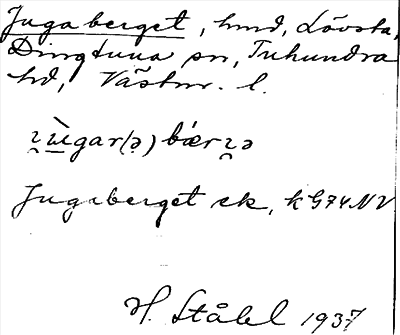 Jugaberget, hmd, Lövsta,
Dingtuna sn, Tuhundra
hd, Västm. l.
ɀu̱̇̀gar(ə) bárɀə
Jugaberget ek, k G74NV
H. Ståhl 1937